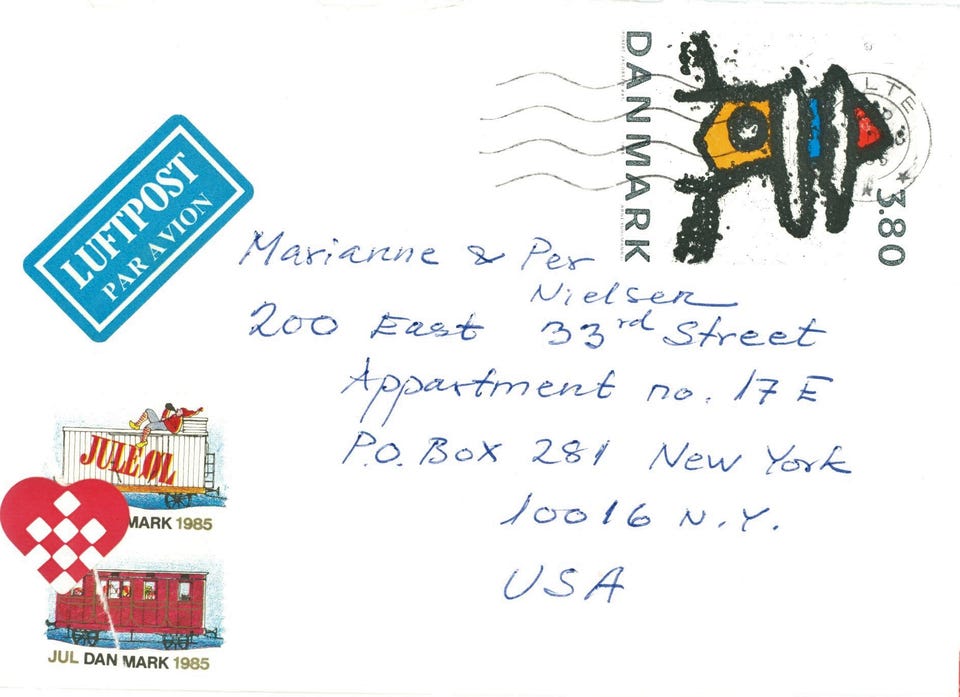 DANMARK
LTE
3.80
LUFTPOST
PAR AVION
Marianne & Per
Nielsen
200 East 33rd Street
Appartment no. 17 E
P.O. Box 281 New York
10016 N.Y.
USA
JULE ØL
MARK 1985
JUL DANMARK 1985